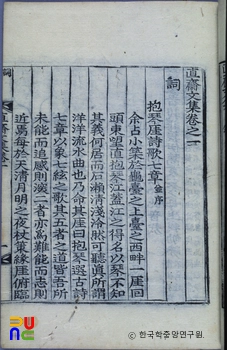 直齋文集卷之一
詞
抱琴厓詩歌七章 並序
余占小築於龜臺之上臺之西畔一厓回
頭東望直抱琴江蓋江之得名以琴不知
其義何居而石瀨清淺泠然可聽眞所謂
洋洋流水曲也乃命其厓曰抱琴選古詩
七章以象七絃之歌其五者之道皆吾所
未能而追感則深二者亦爲難能而志則
近焉每於天清月明之夜杖藜緣厓俯臨
詞
直齋文集卷一
한국학중앙연구원.